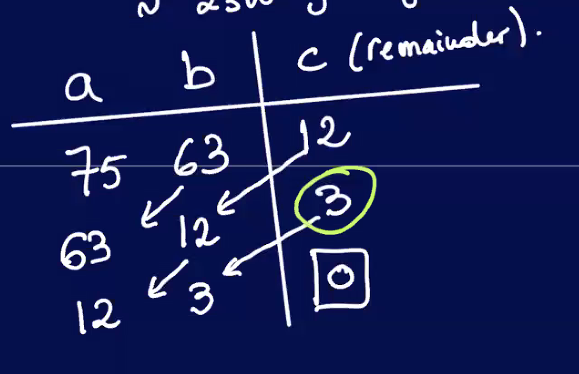 a b c (remainder).
75 63 12
63 12 3
12 3 0